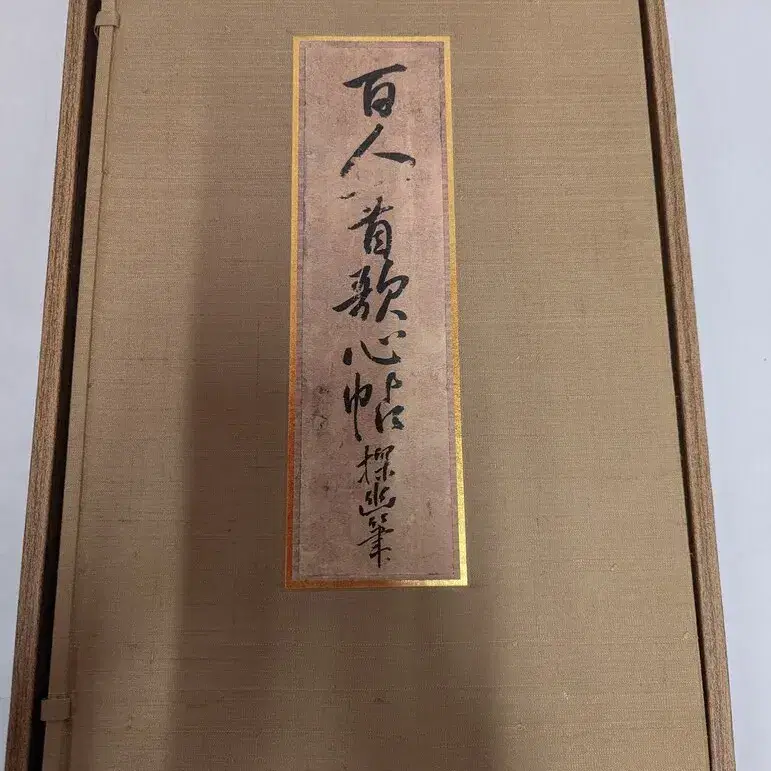 百人一首歌心帖 探幽筆